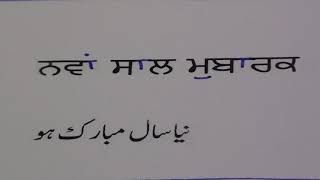 ਨਵਾਂ ਸਾਲ ਮੁਬਾਰਕ
نیا سال مبارک ہو